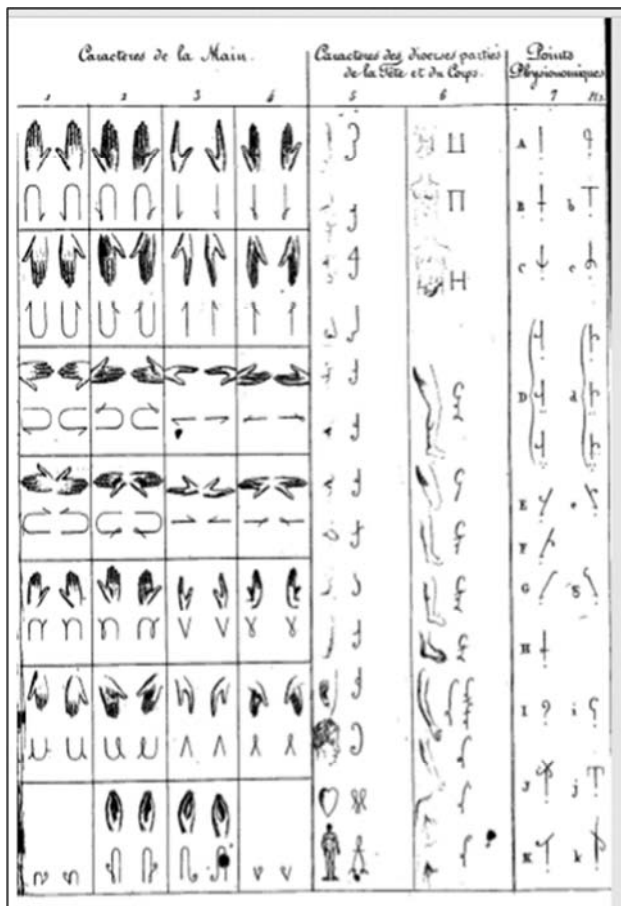 Caractères de la Main.
Caractères des diverses parties
de la Tête et du Corps.
Points
Physionomiques
1 2 3 4 5 6 7
A
B b
C c
D d
E e
F
G g
H
I i
J j
K k